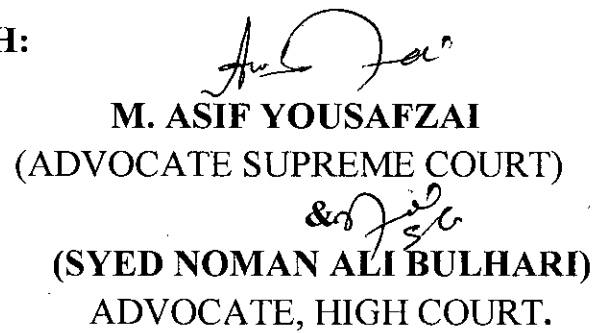 H:
M. ASIF YOUSAFZAI
(ADVOCATE SUPREME COURT)
&
(SYED NOMAN ALI BULHARI)
ADVOCATE, HIGH COURT.